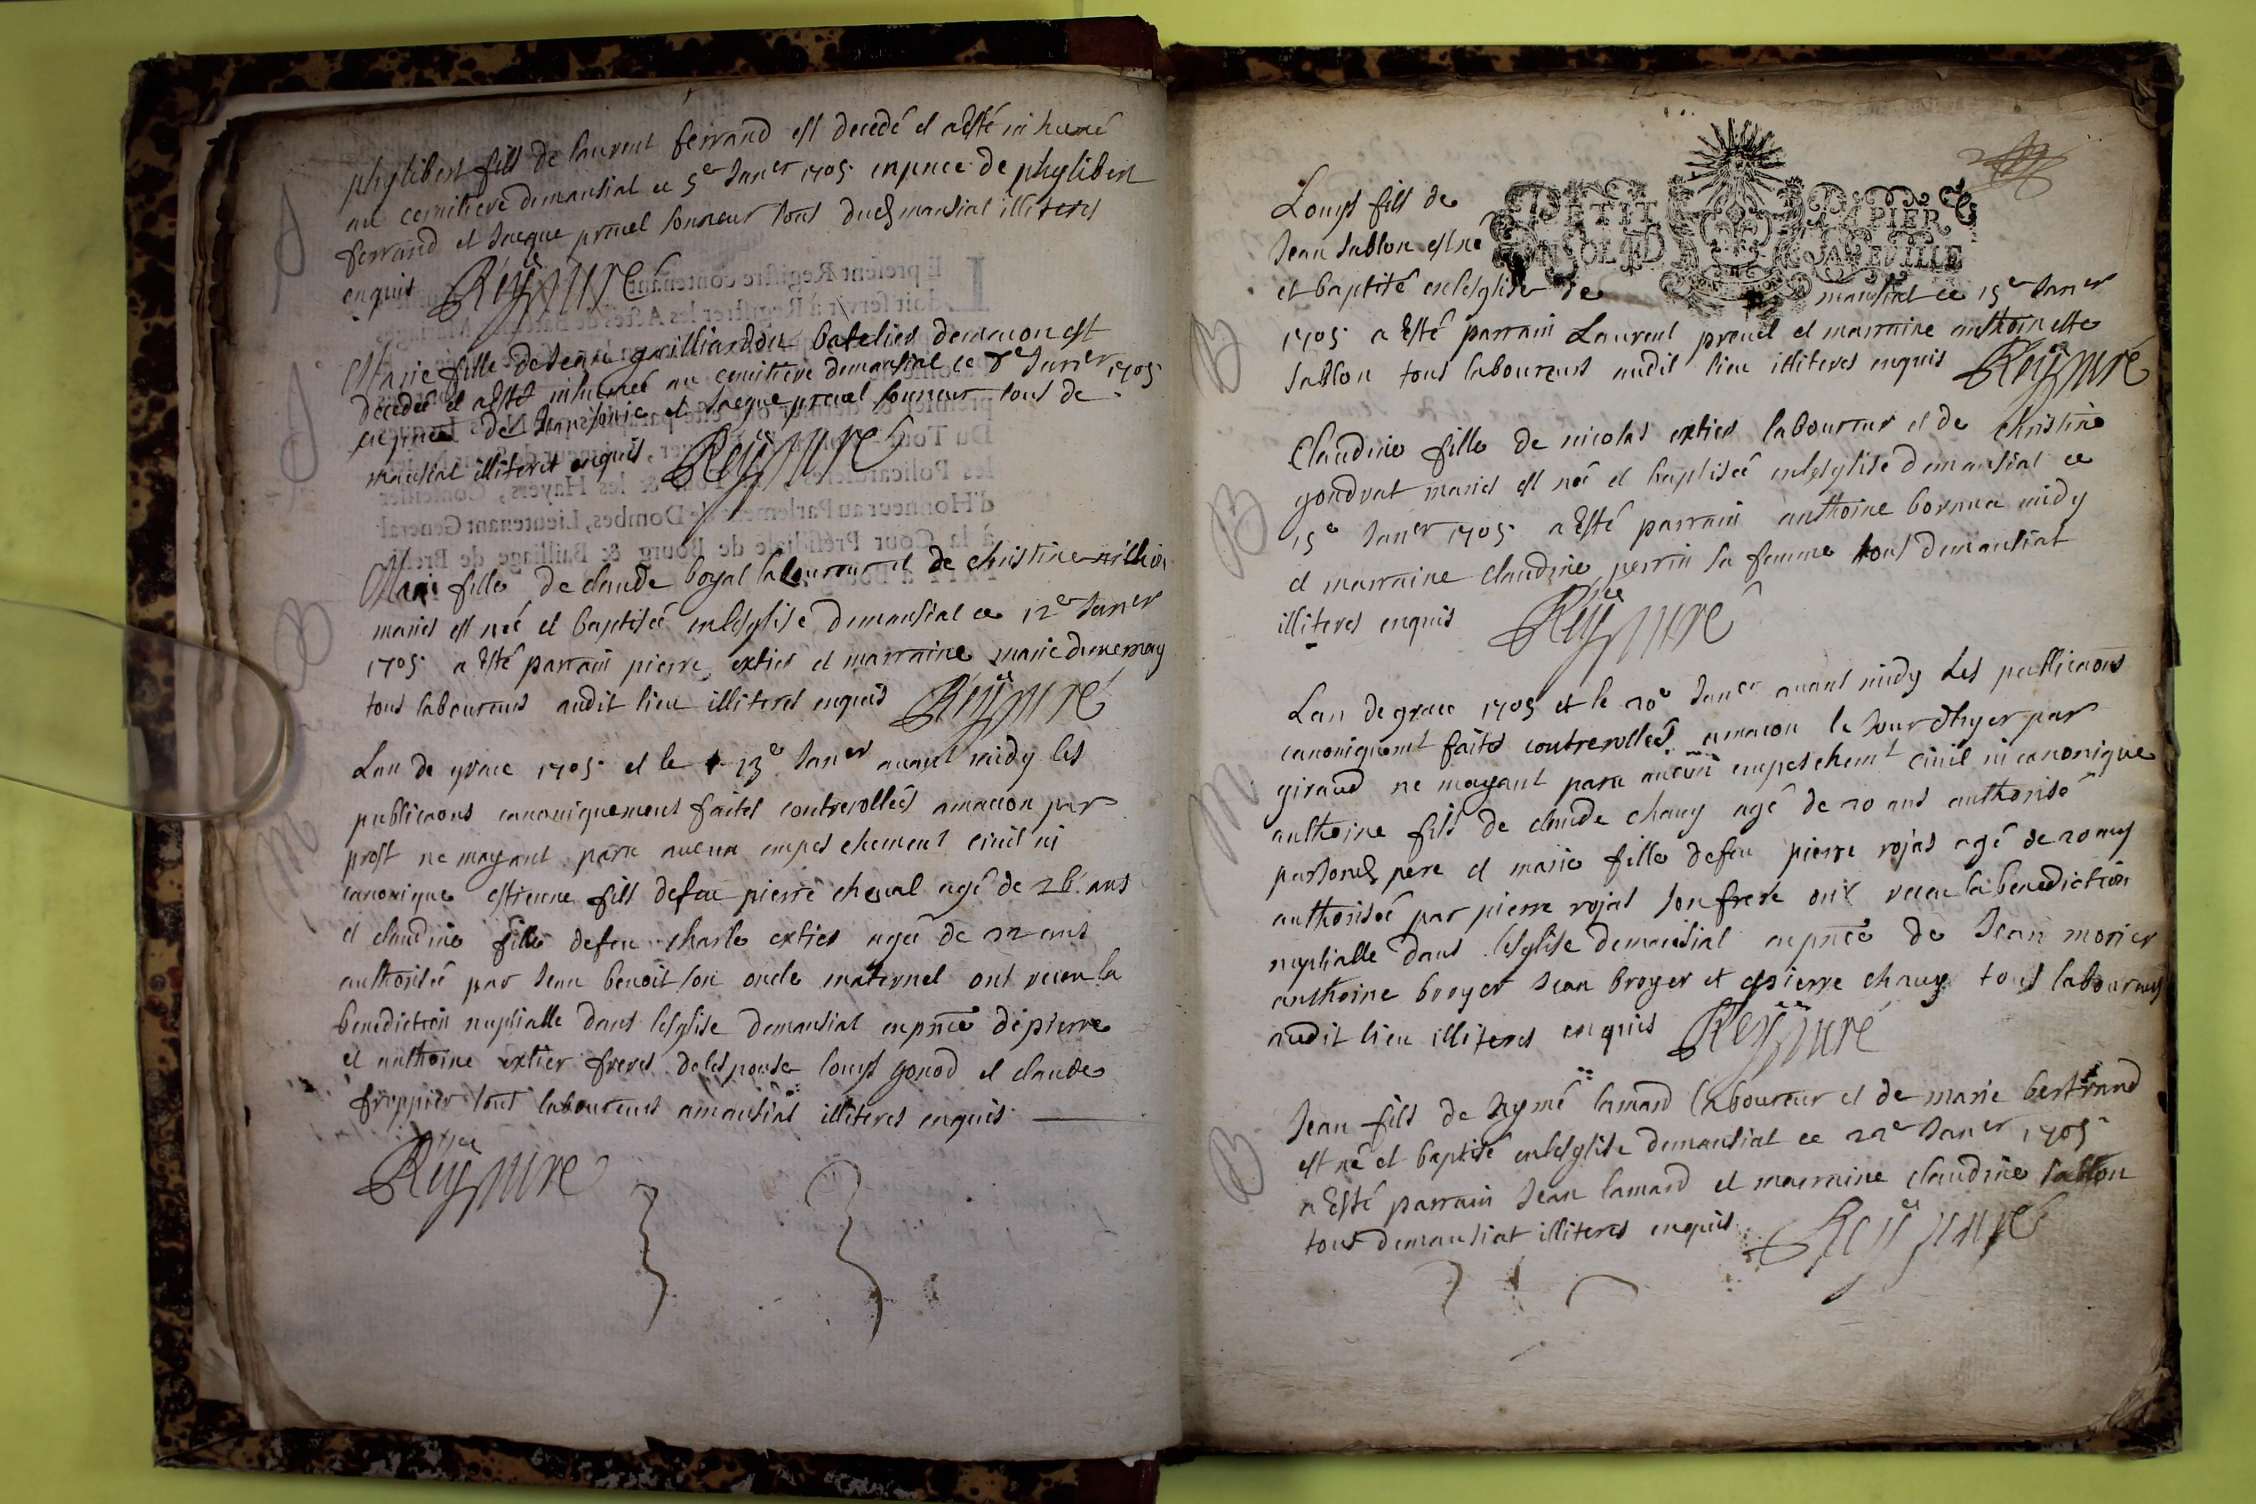 phylibert fils de laurent ferrand est decedé et a Esté inhumé
au cemitiere demansiat ce 5e Janer 1705 en pnce de phylibert
ferrand et Jacque prevel sonneur tous dud mansiat illiteres
enquis Rey curé
Marie fille de Jean batelier demacon est
decedeé et a Esté inhumeé au cemitiere demansiat ce Janer 1705
en pnce de et Jacque prevel sonneur tous de
mansiat illiteres enquis Rey curé
Marie fille de claude boyat laboureur et de christine
mariés est neé et baptiseé en lesglise demansiat ce 12e Janer
1705 a Esté parrain pierre extier et marraine marie
tous laboureurs audit lieu illiteres enquis Rey curé
Lan de grace 1705 et le 13e Janer avant midy les
publicaons canoniquement faites controrolleés amacon par
prost ne mayant paru aucun empeschement civil ni
canonique estienne fils defeu pierre cheval agé de 26 ans
et claudine fille defeu charle extier ageé de 22 ans
authoriseé par Jean benoit son oncle maternel ont receu la
benediction nuptialle dans lesglise demansiat en pnce de pierre
et anthoine extier freres delespouse louys gonod et claude
froppier tous laboureurs amansiat illiteres enquis
Rey curé
PETIT PAPIER
Louys fils de
Jean sablon est né
et baptisé en lesglise de mansiat ce 15e Janer
1705 a Esté parrain Laurent prevel et marraine anthoinette
sablon tous laboureurs audit lieu illiteres enquis Rey curé
Claudine fille de nicolas extier laboureur et de christine
gondrat mariés est neé et baptiseé en lesglise demansiat ce
15e Janer 1705 a Esté parrain anthoine
et marraine claudine perrin sa femme tous demansiat
illiteres enquis Rey curé
Lan de grace 1705 et le 20e Janer avant midy Les publicaons
canoniquemt faites controrolleés amacon le Jour dhyer par
giraud ne mayant paru aucun empeschemt civil ni canonique
anthoine fils de claude chavy agé de 20 ans authorisé
par sond pere et marie fille defeu pierre rojas agé de 20 ans
authoriseé par pierre rojas son frere ont receu la benediction
nuptialle dans lesglise demansiat en pnce de Jean morier
anthoine broyer Jean broyer et pierre chavy tous laboureurs
audit lieu illiteres enquis Rey curé
Jean fils de Aymé lamard laboureur et de marie bertrand
est né et baptisé en lesglise demansiat ce 22e Janer 1705
a Esté parrain Jean lamard et marraine claudine sablon
tous demansiat illiteres enquis Rey curé